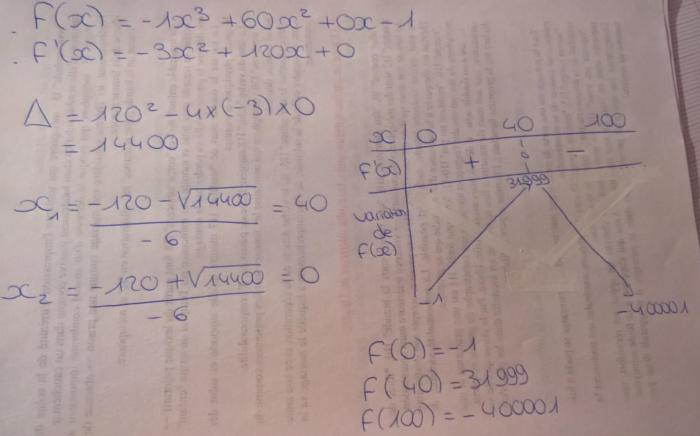 . F(x) = -1x³ + 60x² + 0x - 1
. F'(x) = -3x² + 120x + 0
Δ = 120² - 4x(-3)x0
= 14400
x₁ = -120 - √14400 / -6 = 40
x₂ = -120 + √14400 / -6 = 0
x 0 40 100
F'(x) + 0 -
variation de F(x)
31999
-1
-400001
F(0) = -1
F(40) = 31999
F(100) = -400001